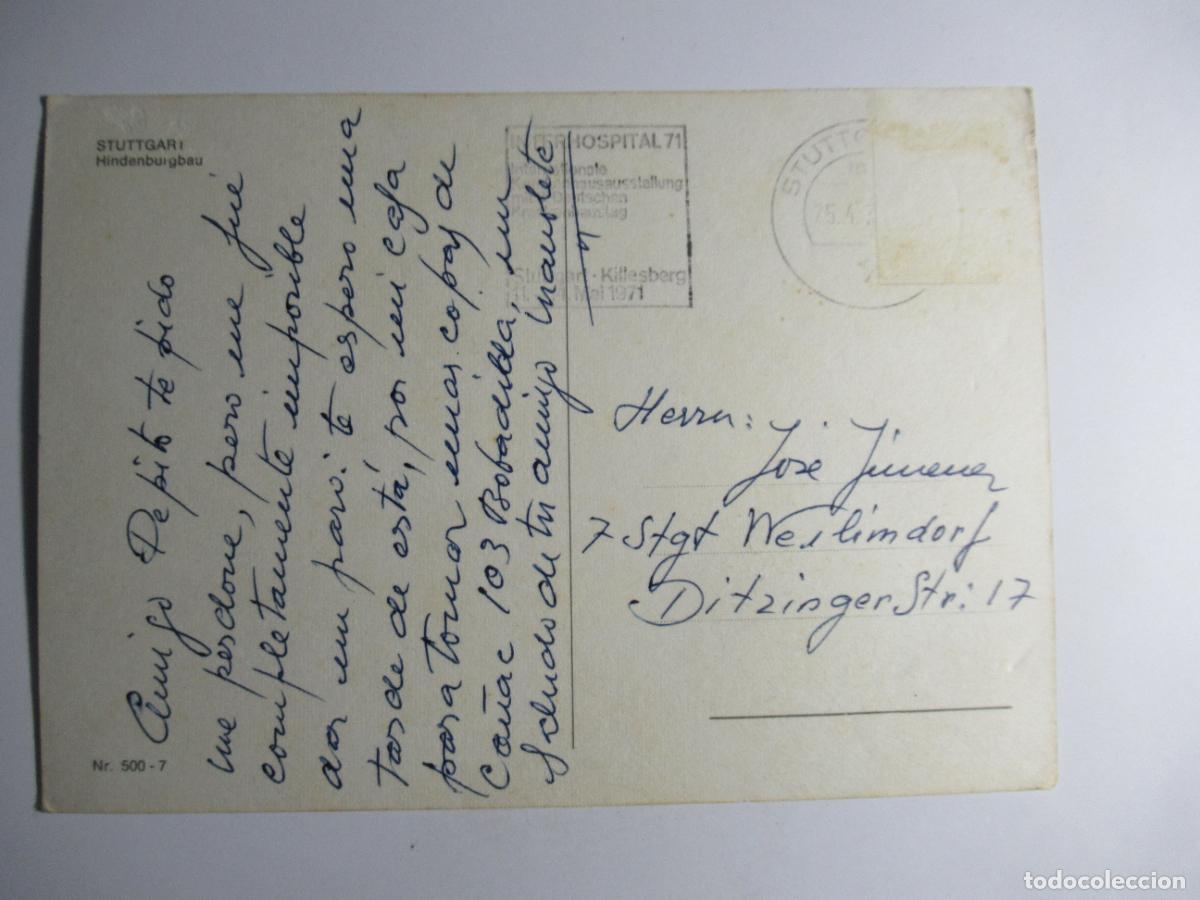 STUTTGART
Hindenburgbau
Amigo Pepito te pido
me perdone, pero me fué
completamente imposible
dar un paso: te espero una
tarde de está, por mi casa
para tomar unas copas de
Coñac 103 Bobadilla, un
saludo de tu amigo Manolete
Nr. 500 - 7
INTERHOSPITAL 71
Internationale
Krankenhausausstellung
mit Deutschen
Krankenhaustag
Stuttgart - Killesberg
Mai 1971
STUTTG
25.4.
Herrn:
José Jimenez
7 Stgt Weilimdorf
Ditzinger Str: 17
todocoleccion